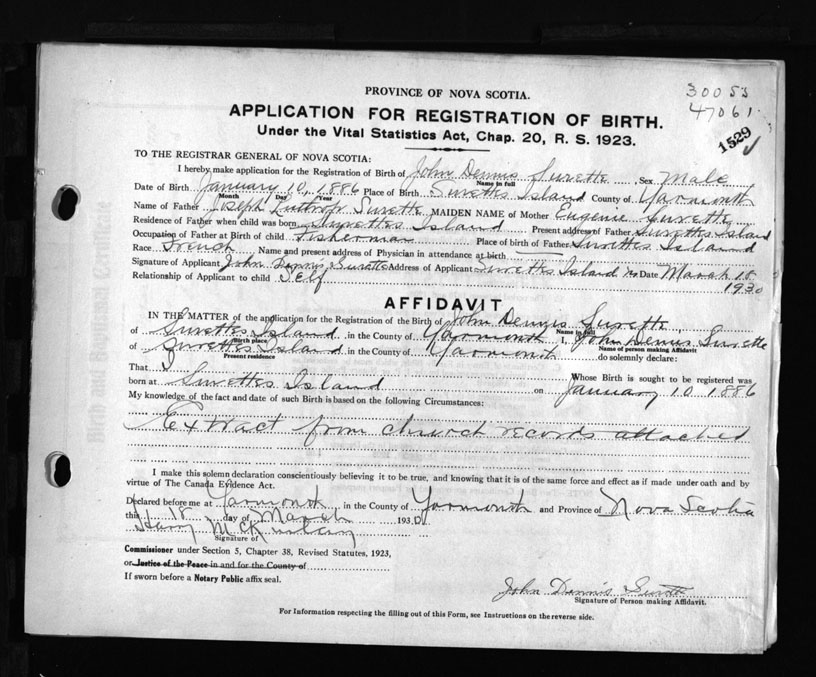 30053
47061
1529
PROVINCE OF NOVA SCOTIA.
APPLICATION FOR REGISTRATION OF BIRTH.
Under the Vital Statistics Act, Chap. 20, R. S. 1923.
TO THE REGISTRAR GENERAL OF NOVA SCOTIA:
I hereby make application for the Registration of Birth of John Dennis Surette Sex Male
Name in full
Date of Birth January 10, 1886 Place of Birth Surettes Island County of Yarmouth
Month Day Year
Name of Father Joseph Luthrop Surette MAIDEN NAME of Mother Eugenie Surette
Residence of Father when child was born Surettes Island Present address of Father Surettes Island
Occupation of Father at Birth of child Fisherman Place of birth of Father Surettes Island
Race French Name and present address of Physician in attendance at birth
Signature of Applicant John Dennis Surette Address of Applicant Surettes Island Date March 18
1930
Relationship of Applicant to child Self
AFFIDAVIT
IN THE MATTER of the application for the Registration of the Birth of John Dennis Surette
Name in full
of Surettes Island in the County of Yarmouth I, John Dennis Surette
Birth place Name of person making Affidavit
of Surettes Island in the County of Yarmouth do solemnly declare:
Present residence
That I Whose Birth is sought to be registered was
born at Surettes Island on January 10 1886
My knowledge of the fact and date of such Birth is based on the following Circumstances:
Extract from church records attached
I make this solemn declaration conscientiously believing it to be true, and knowing that it is of the same force and effect as if made under oath and by
virtue of The Canada Evidence Act.
Declared before me at Yarmouth in the County of Yarmouth and Province of Nova Scotia
this 18 day of March 1930
Harry McKinley
Signature of
Commissioner under Section 5, Chapter 38, Revised Statutes, 1923,
or Justice of the Peace in and for the County of
If sworn before a Notary Public affix seal.
John Dennis Surette
Signature of Person making Affidavit.
For Information respecting the filling out of this Form, see Instructions on the reverse side.